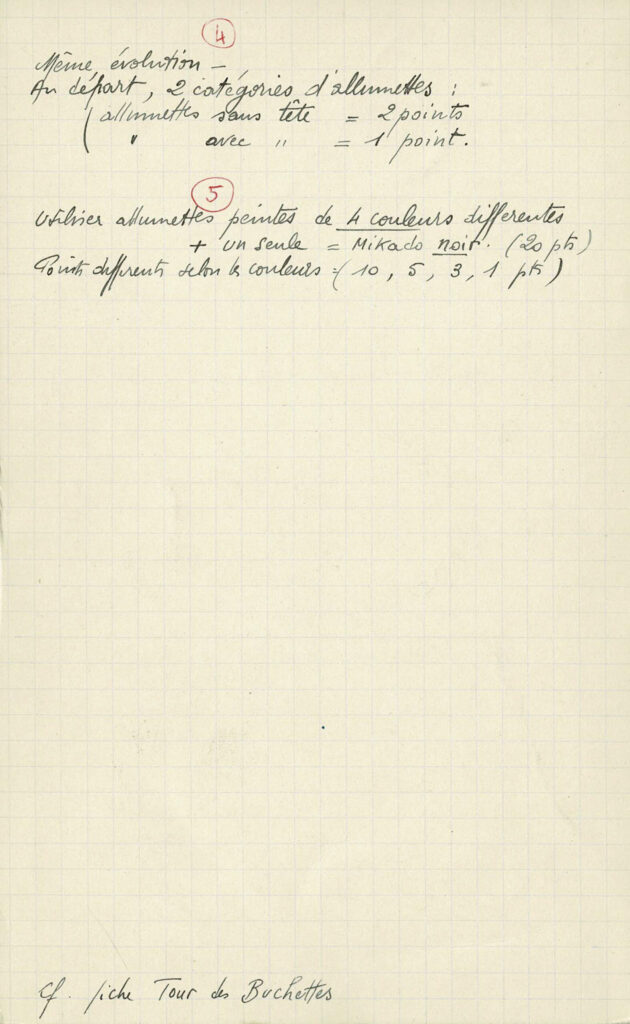 4
Même évolution –
Au départ, 2 catégories d'allumettes :
( allumettes sans tête = 2 points
" avec " = 1 point.
5
Utiliser allumettes peintes de 4 couleurs differentes
+ un seule = Mikado noir. (20 pts)
Points differents selon les couleurs = ( 10, 5, 3, 1 pts )
cf. fiche Tour des Buchettes